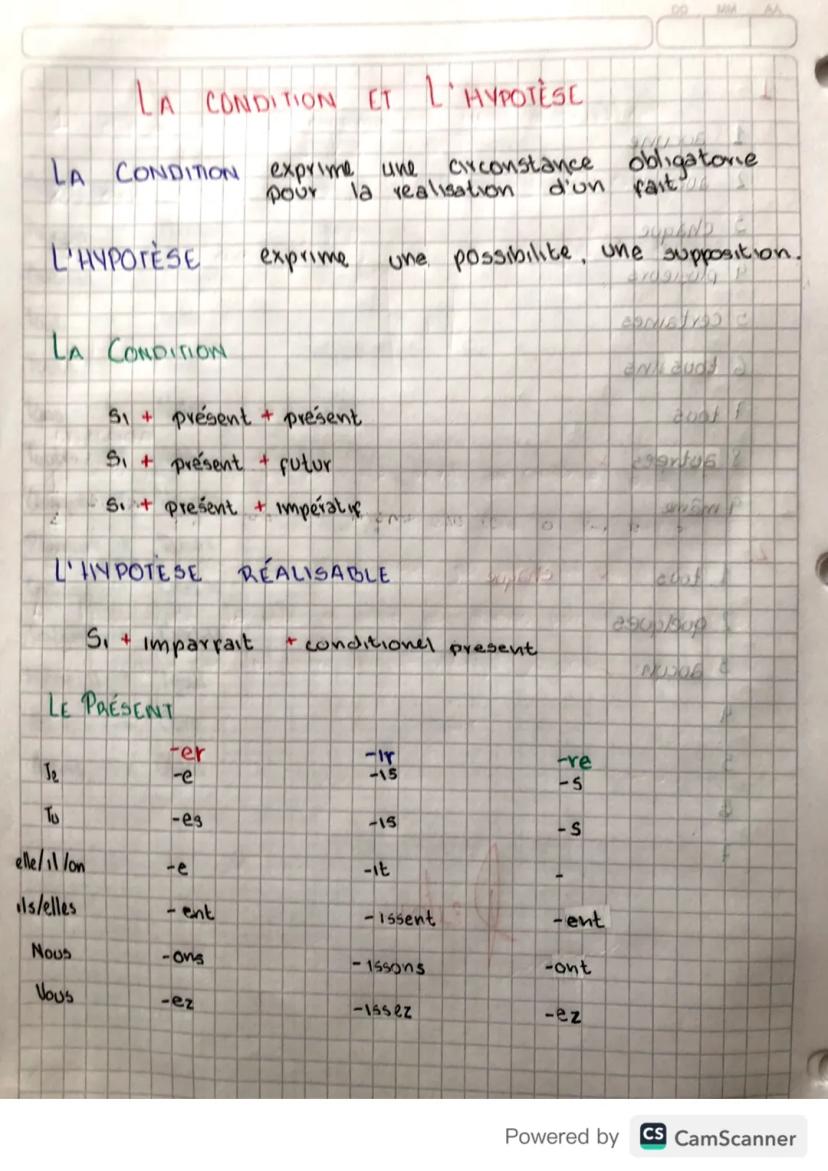 LA CONDITION ET L'HYPOTÈSE
LA CONDITION exprime une circonstance obligatorie
pour la realisation d'un fait
L'HYPOTÈSE exprime une possibilite, une supposition.
LA CONDITION
Si + présent + présent
Si + présent + futur
Si + présent + impératif
L'HYPOTÈSE RÉALISABLE
Si + imparfait + conditionel present
LE PRÉSENT
-er -ir -re
Je -e -is -s
Tu -es -is -s
elle/il/on -e -it -
ils/elles -ent -issent -ent
Nous -ons -issons -ont
Vous -ez -issez -ez
Powered by CS CamScanner